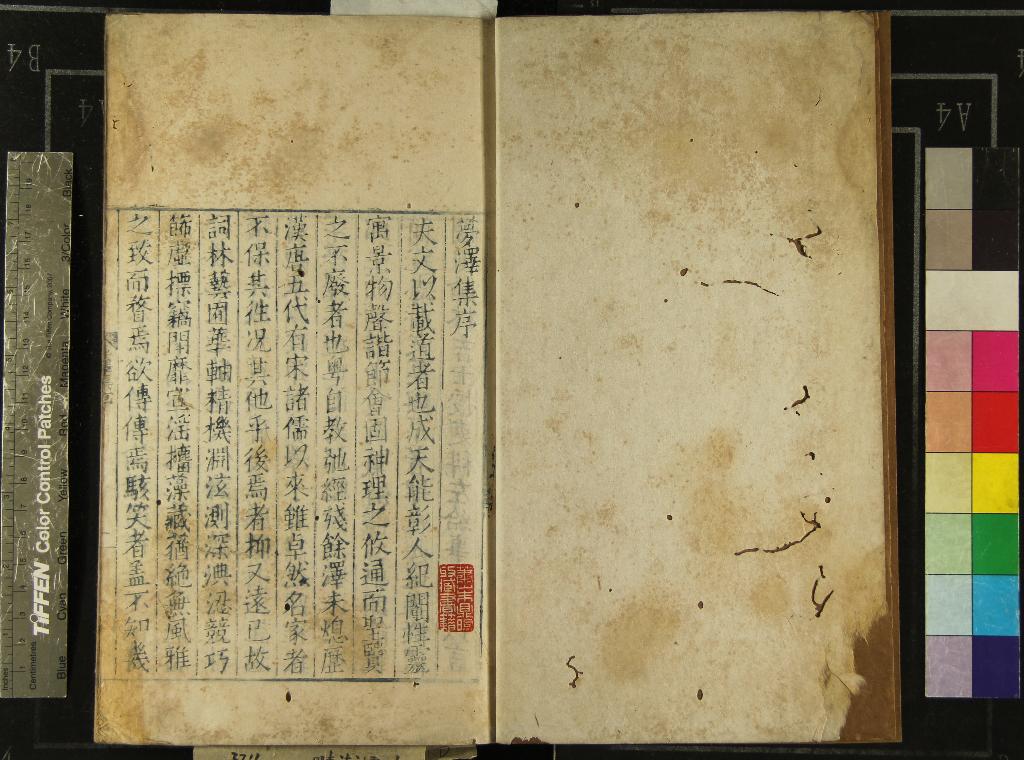 夢澤集序
夫文以載道者也成天能彰人紀闡性靈
寓景物聲諧節會固神理之攸通而聖賢
之不廢者也粵自教弛經殘餘澤未熄歷
漢唐五代有宋諸儒以來雖卓然名家者
不保其往况其他乎後焉者抑又遠已故
詞林藝囿華軸精機淵泫測深淟涊競巧
飾虛摽竊閑靡宣淫擅藻藏猶絶無風雅
之致而瞀焉欲傳傳焉駭笑者孟不知幾
蕭山朱鼎煦
收藏書籍
TIFFEN Color Control Patches
Blue
Cyan
Green
Yellow
Red
Magenta
White
3/Color
Black
Centimetres
Inches
B4
A4
A4